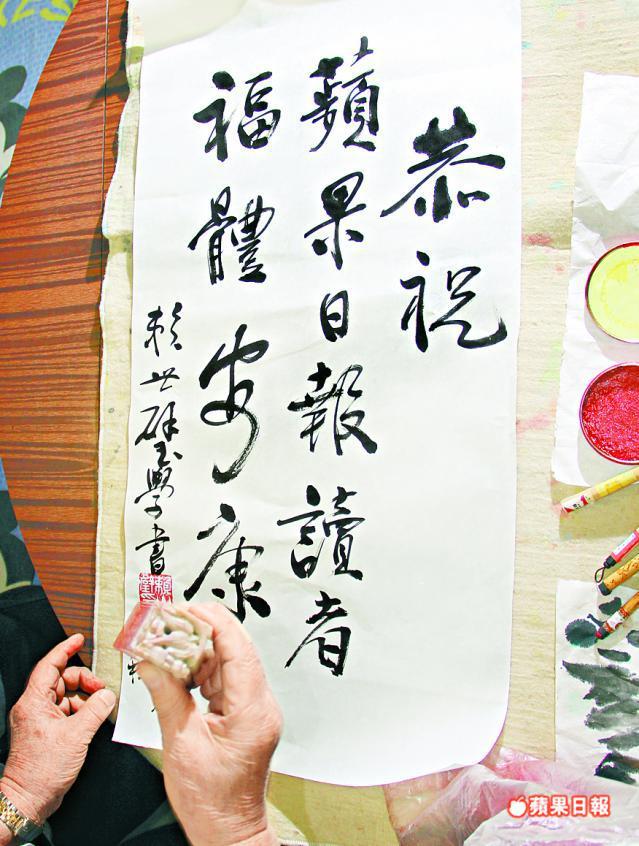 恭祝
蘋果日報讀者
福體安康
賴世
學書
蘋果日報